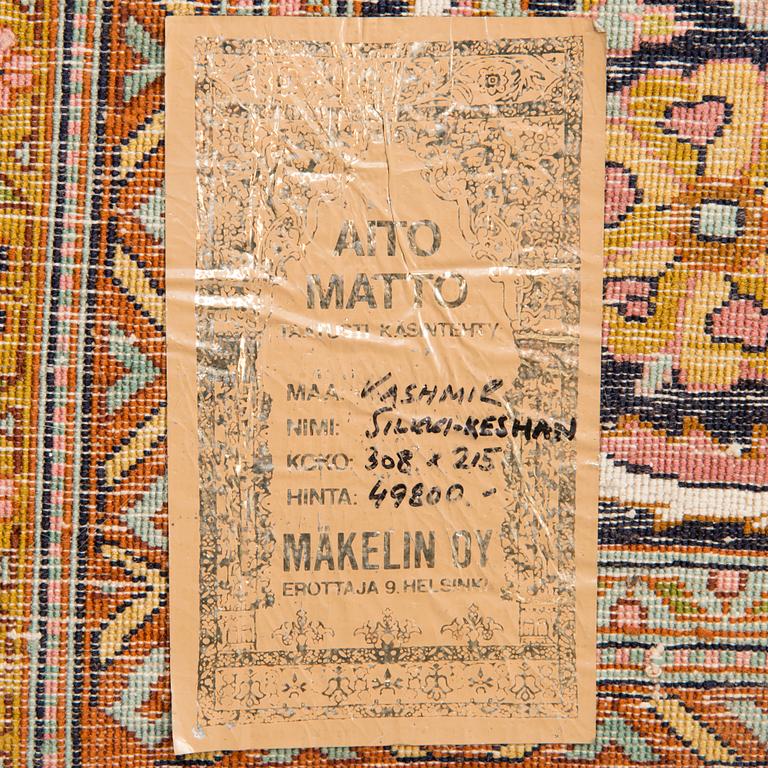 AITO
MATTO
TAATUSTI KÄSINTEHTY
MAA: KASHMIR
NIMI: SILKKI-KESHAN
KOKO: 308 x 215
HINTA: 49800.-
MÄKELIN OY
EROTTAJA 9. HELSINKI